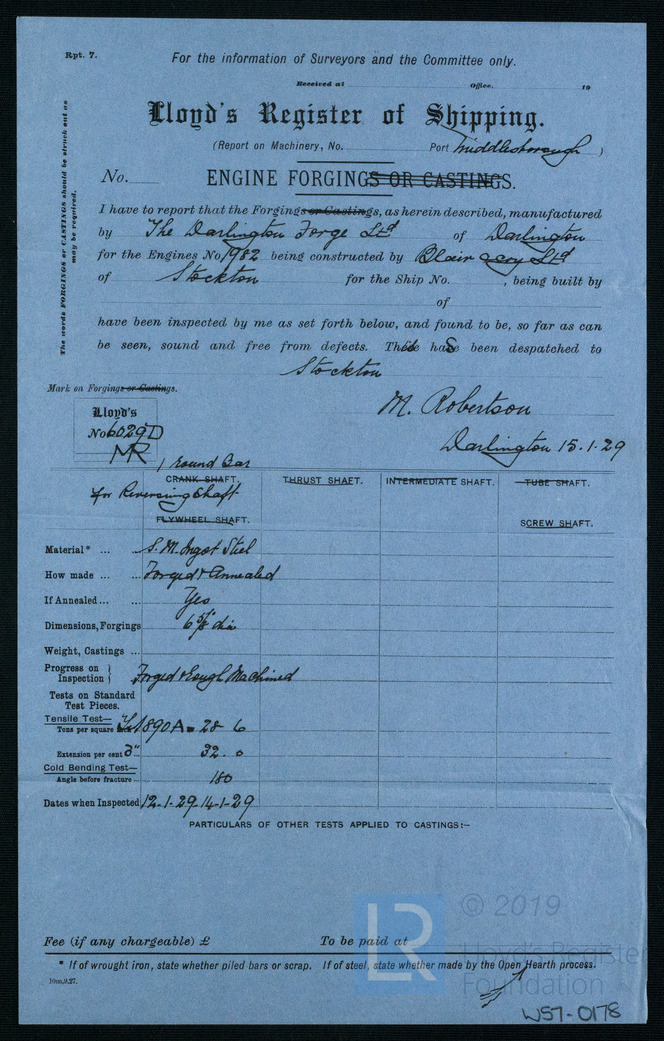 Rpt. 7.
For the information of Surveyors and the Committee only.
Received at Office. 19
Lloyd's Register of Shipping.
(Report on Machinery, No. Port Middlesborough )
No.
ENGINE FORGINGS OR CASTINGS.
The words FORGINGS or CASTINGS should be struck out as
may be required.
I have to report that the Forgings or Castings, as herein described, manufactured
by The Darlington Forge Ltd of Darlington
for the Engines No. 1982 being constructed by Blair & Coy Ltd
of Stockton for the Ship No. , being built by
of
have been inspected by me as set forth below, and found to be, so far as can
be seen, sound and free from defects. This has been despatched to
Stockton
Mark on Forgings or Castings.
M. Robertson
Lloyd's
No 6029D
MR
Darlington 15.1.29
1 round Bar
CRANK SHAFT. THRUST SHAFT. INTERMEDIATE SHAFT. TUBE SHAFT.
for Reversing Shaft.
FLYWHEEL SHAFT. SCREW SHAFT.
Material* ... S.M. Ingot Steel
How made ... Forged & Annealed
If Annealed ... Yes
Dimensions, Forgings 6 5/8" dia
Weight, Castings ...
Progress on Inspection } Forged & Rough Machined
Tests on Standard
Test Pieces.
Tensile Test—
Tons per square 1890A = 28.6
Extension per cent 3" 32.0
Cold Bending Test—
Angle before fracture ... 180
Dates when Inspected 12-1-29. 14-1-29
PARTICULARS OF OTHER TESTS APPLIED TO CASTINGS:—
© 2019
LR
Lloyd's Register
Foundation
Fee (if any chargeable) £ To be paid at
* If of wrought iron, state whether piled bars or scrap. If of steel, state whether made by the Open Hearth process.
10m,9,27.
WS7-0178